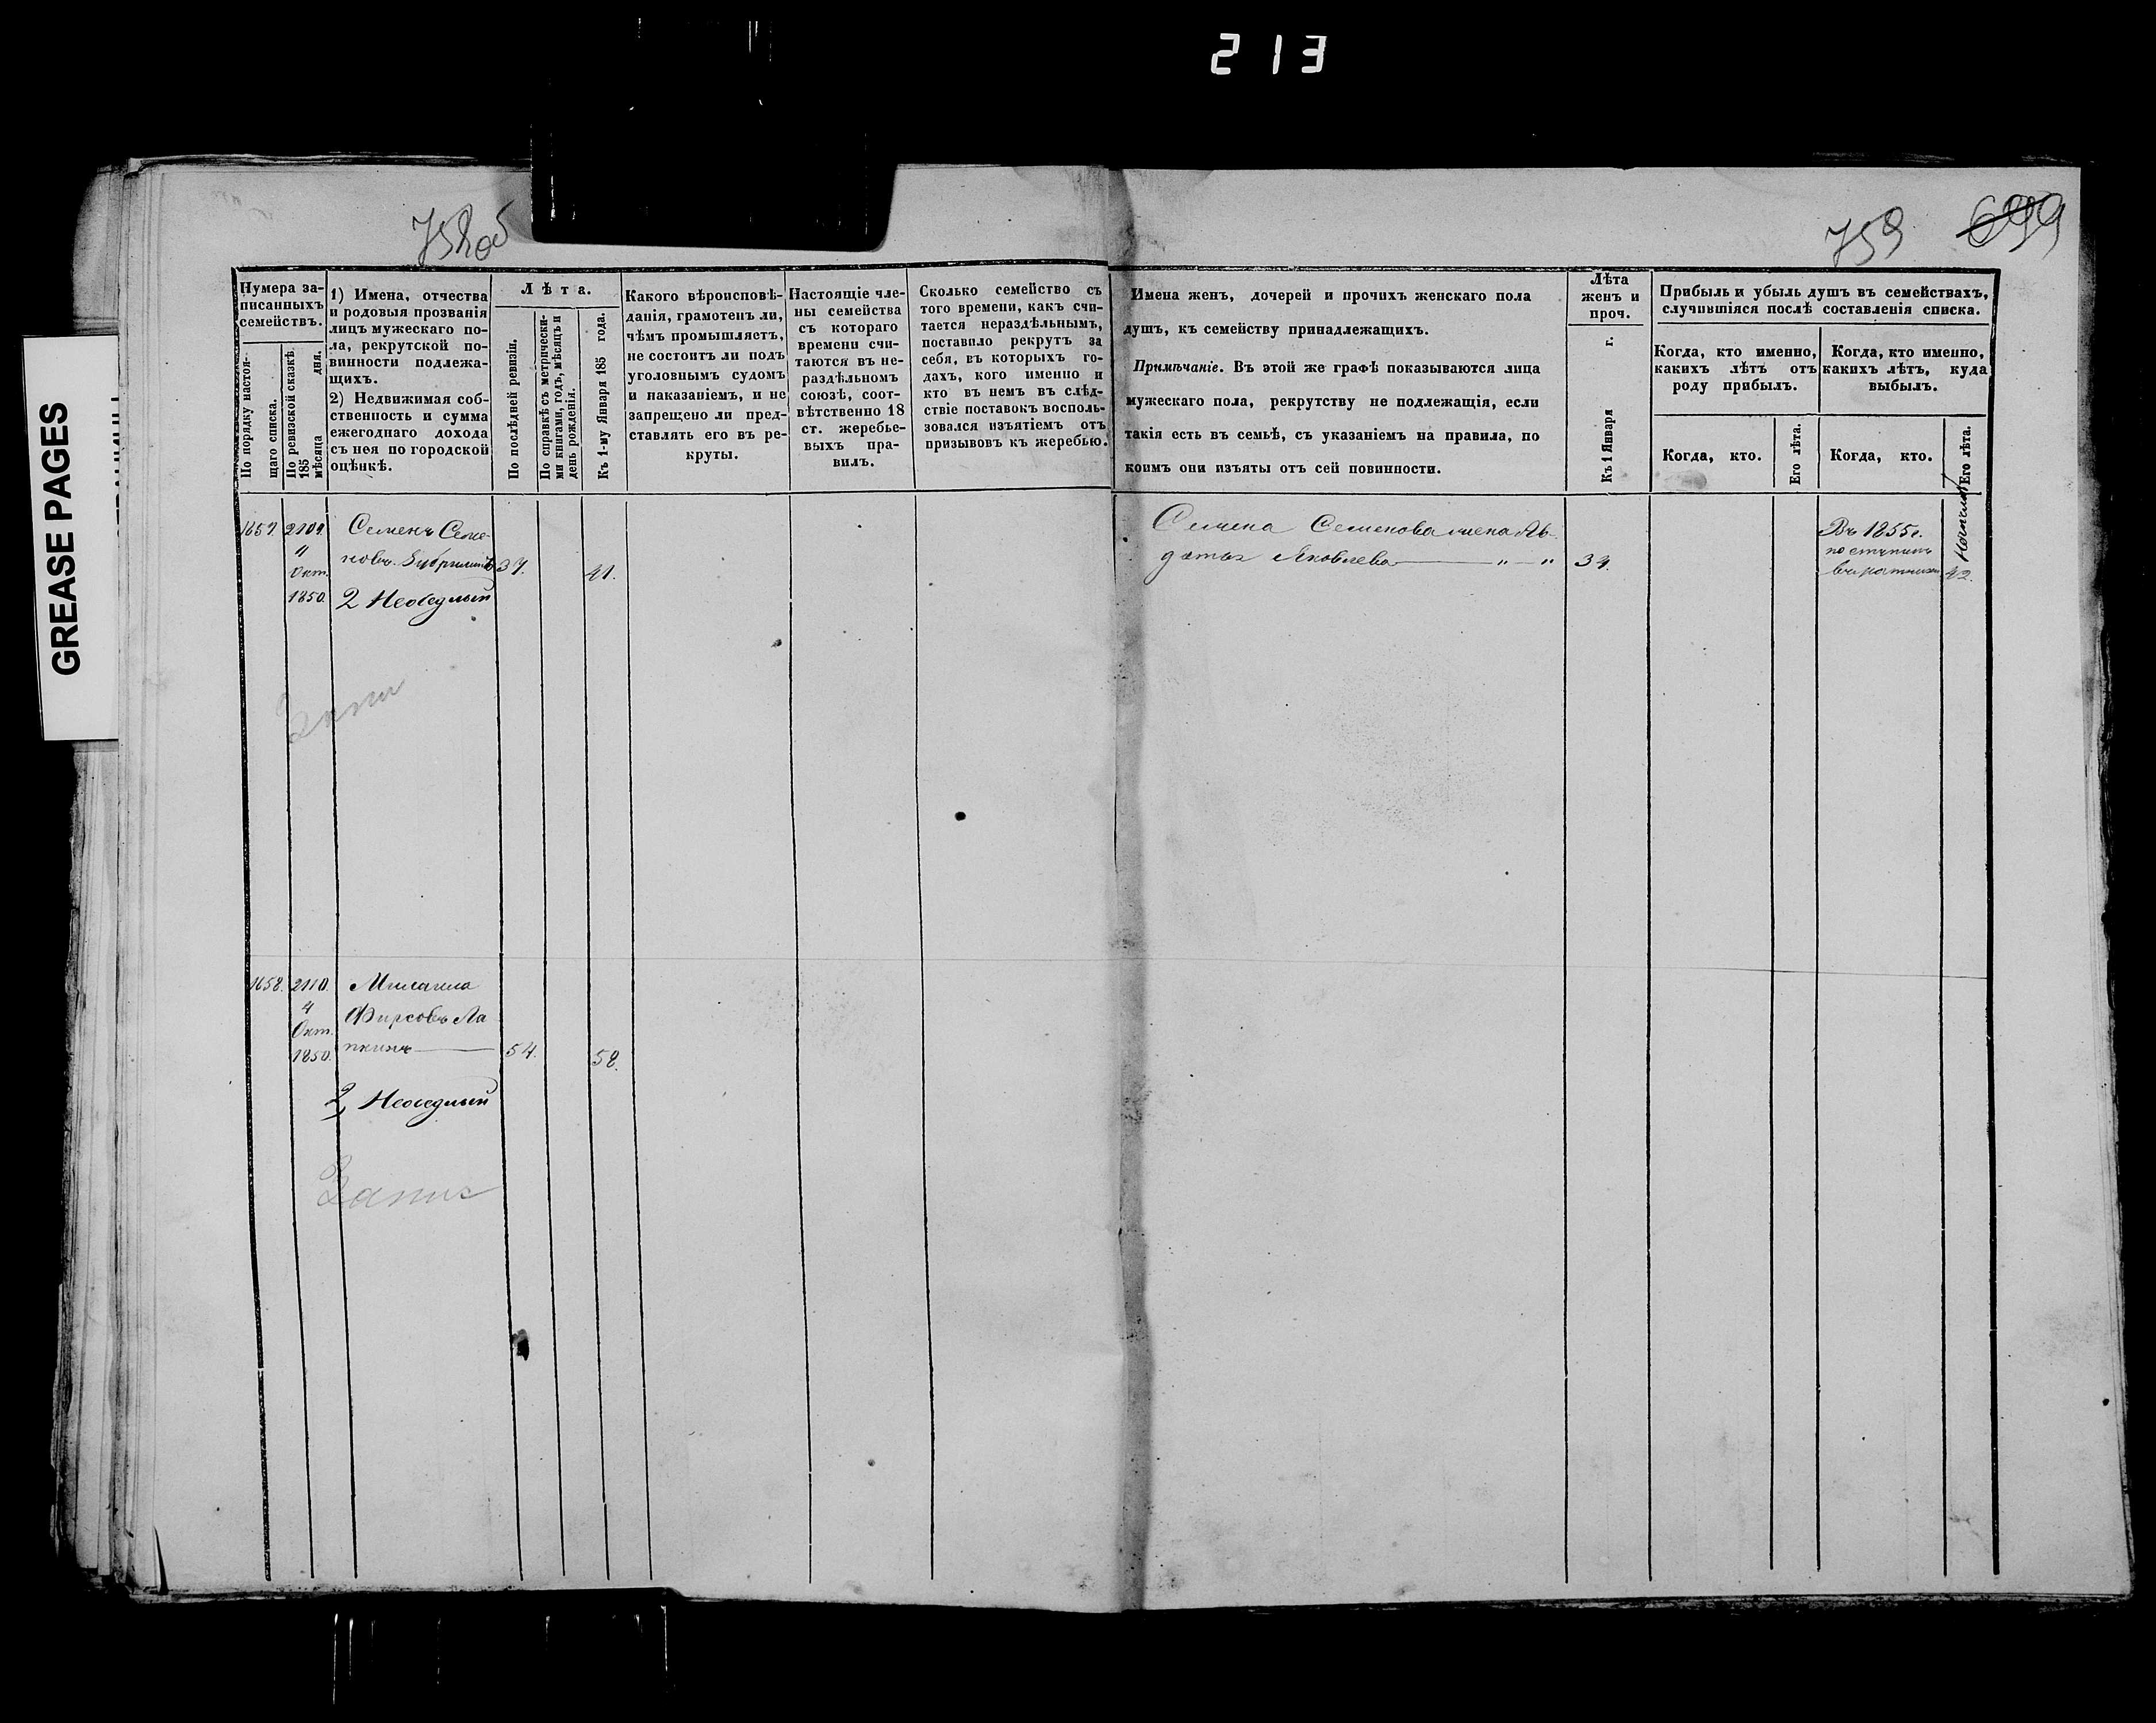 213
758 об
759 699
GREASE PAGES
Нумера за-
писанныхъ
семействъ.
По порядку настоя-
щаго списка.
По ревизской сказкѣ
185 дня.
мѣсяца
1) Имена, отчества
и родовыя прозванія
лицъ мужескаго по-
ла, рекрутской по-
винности подлежа-
щихъ.
2) Недвижимая соб-
ственность и сумма
ежегоднаго дохода
съ нея по городской
оцѣнкѣ.
Лѣта.
По послѣдней ревизіи.
По справкѣ съ метрически-
ми книгами, годъ, мѣсяцъ и
день рожденія.
Къ 1-му Января 185 года.
Какого вѣроисповѣ-
данія, грамотенъ ли,
чѣмъ промышляетъ,
не состоитъ ли подъ
уголовнымъ судомъ
и наказаніемъ, и не
запрещено ли пред-
ставлять его въ ре-
круты.
Настоящіе чле-
ны семейства
съ котораго
времени счи-
таются въ не-
раздѣльномъ
союзѣ, соот-
вѣтственно 18
ст. жеребье-
выхъ пра-
вилъ.
Сколько семейство съ
того времени, какъ счи-
тается нераздѣльнымъ,
поставило рекрутъ за
себя, въ которыхъ го-
дахъ, кого именно и
кто въ немъ въ слѣд-
ствіе поставокъ восполь-
зовался изъятіемъ отъ
призывовъ къ жеребью.
Имена женъ, дочерей и прочихъ женскаго пола
душъ, къ семейству принадлежащихъ.
Примѣчаніе. Въ этой же графѣ показываются лица
мужескаго пола, рекрутству не подлежащія, если
такія есть въ семьѣ, съ указаніемъ на правила, по
коимъ они изъяты отъ сей повинности.
Лѣта
женъ и
проч.
Къ 1 Января г.
Прибыль и убыль душъ въ семействахъ,
случившіяся послѣ составленія списка.
Когда, кто именно,
какихъ лѣтъ отъ
роду прибылъ.
Когда, кто именно,
какихъ лѣтъ, куда
выбылъ.
Когда, кто.
Его лѣта.
Когда, кто.
Его лѣта.
1657. 2109.
4
Окт.
1850.
Семенъ Семе-
новъ 37. 41.
2 Неоседлый
Семена Семенова жена Ав-
дотья Яковлева 34.
Въ 1855г.
42.
Запис
1658. 2110.
4
Окт.
1850.
Фирсовъ Ла
пкинъ 54. 58.
2, Неоседлый
Запис